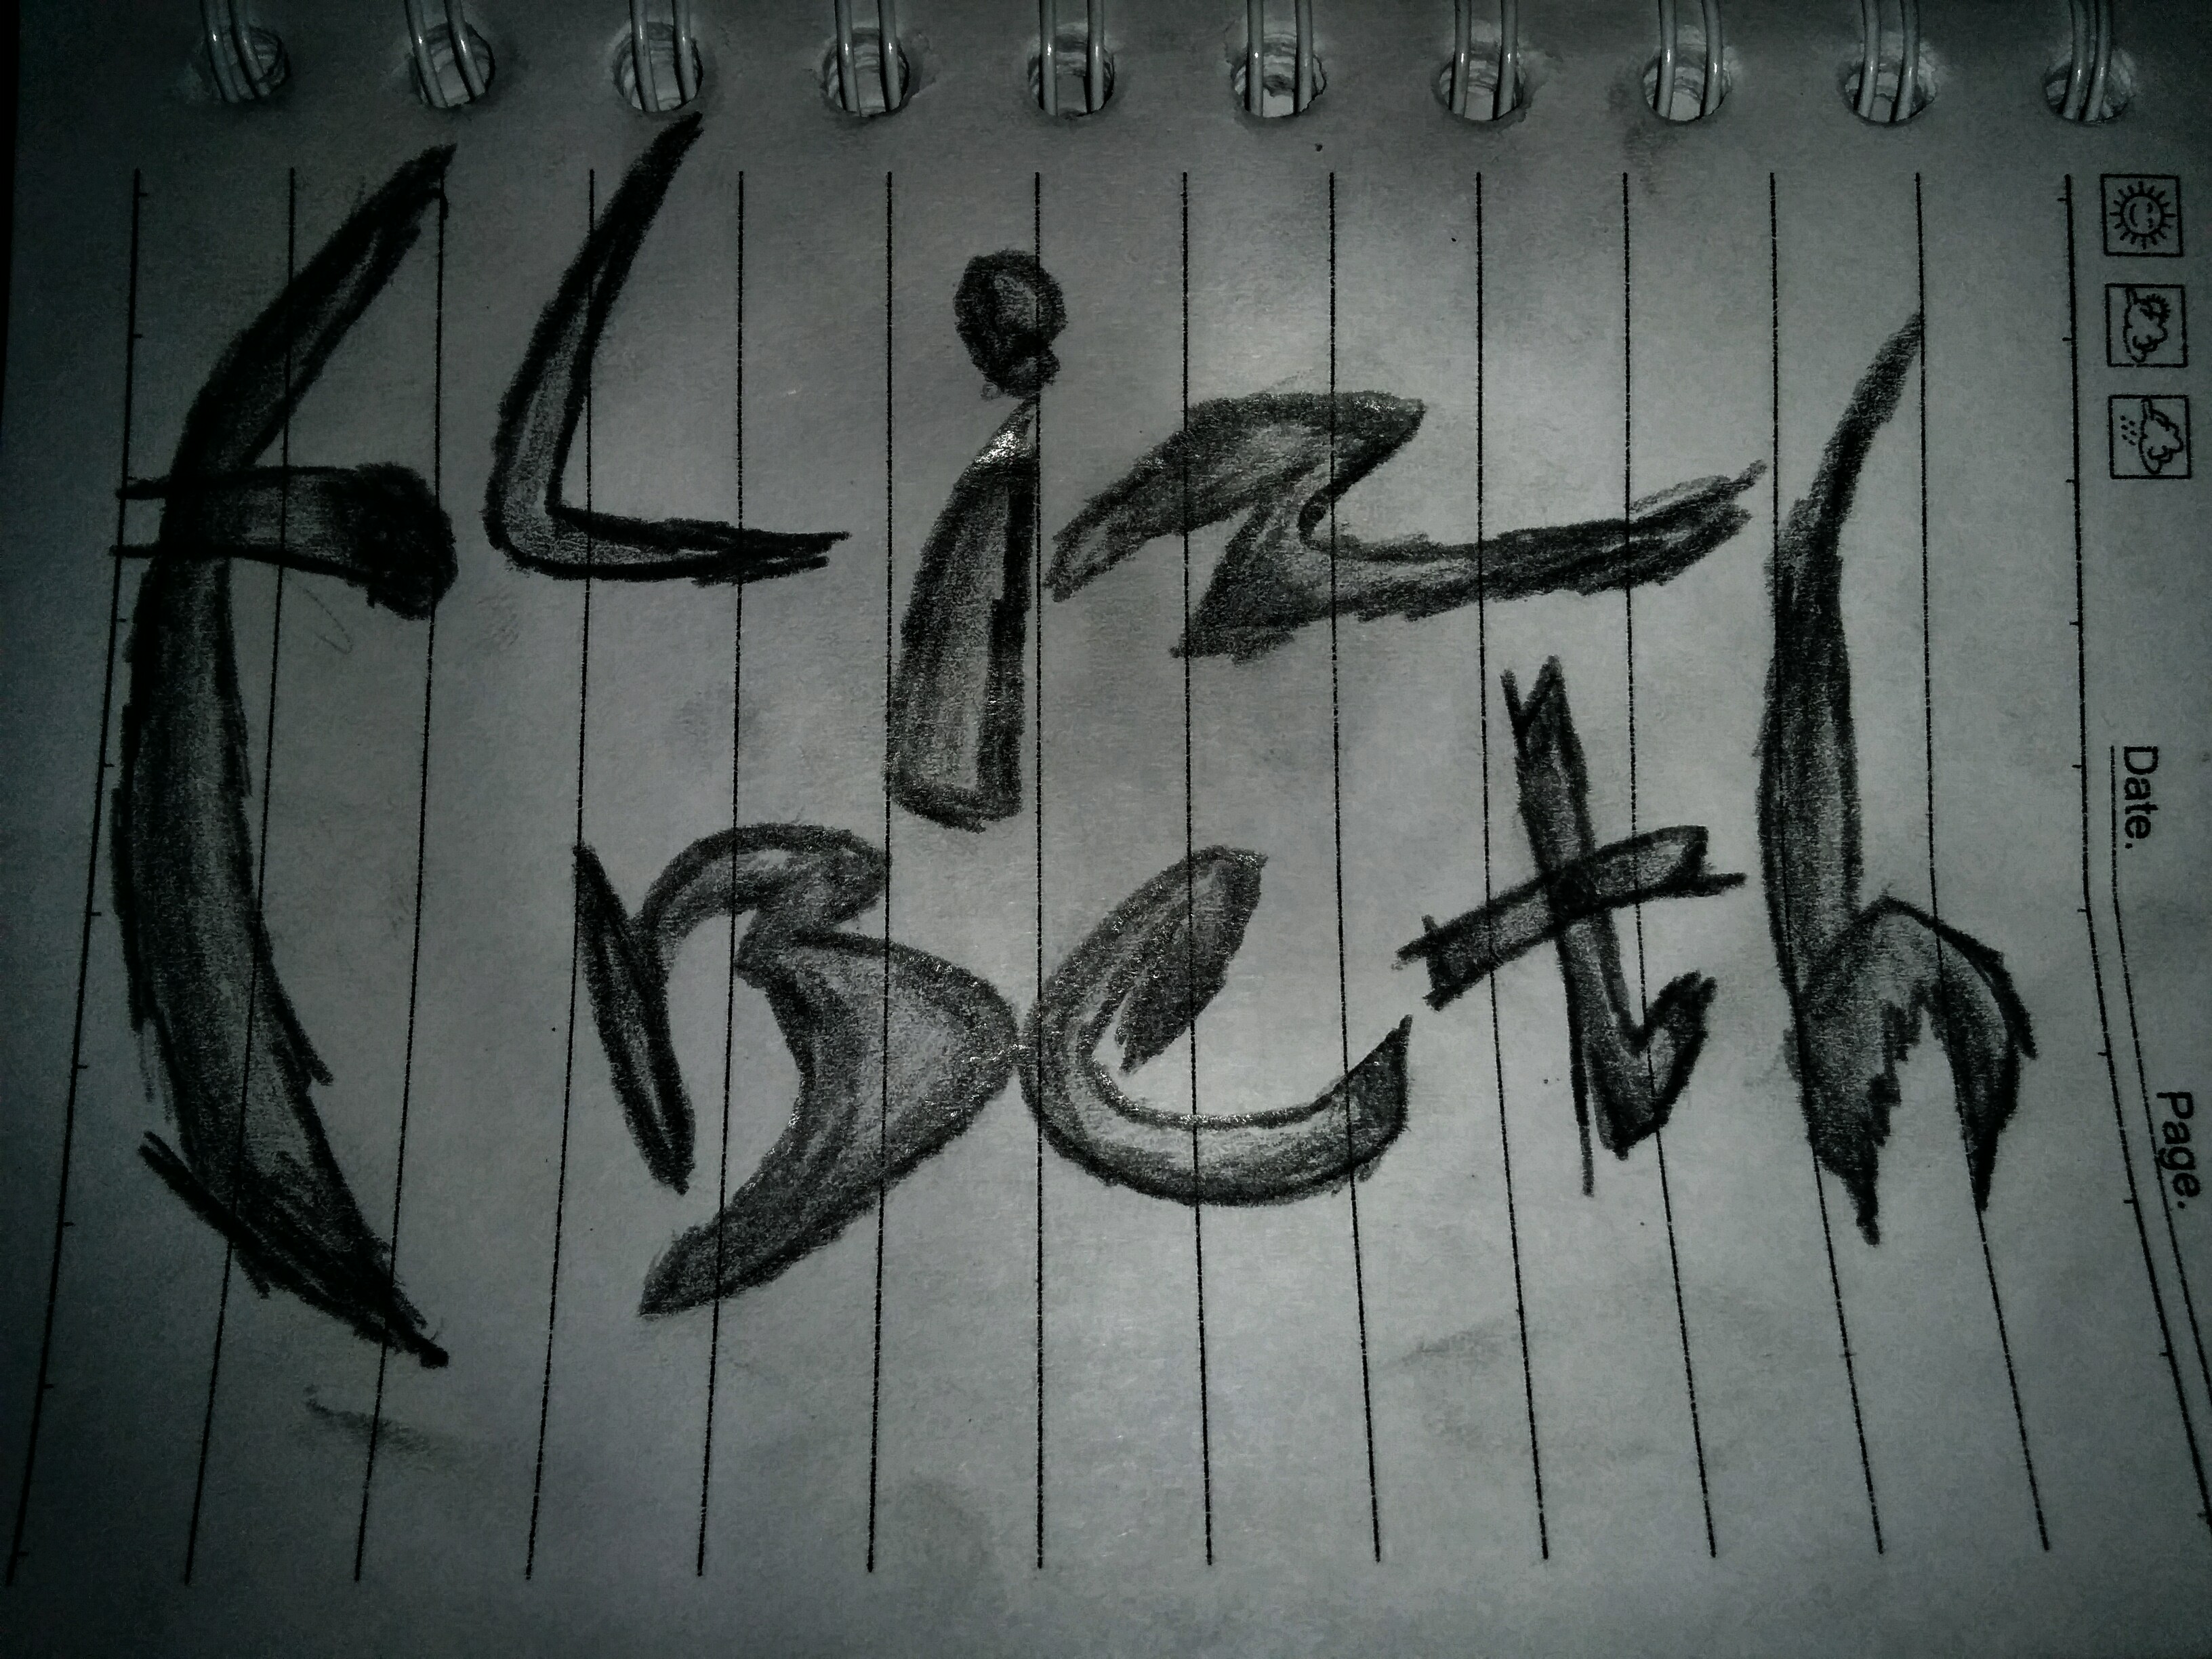 ELiz
Beth
Date.
Page.